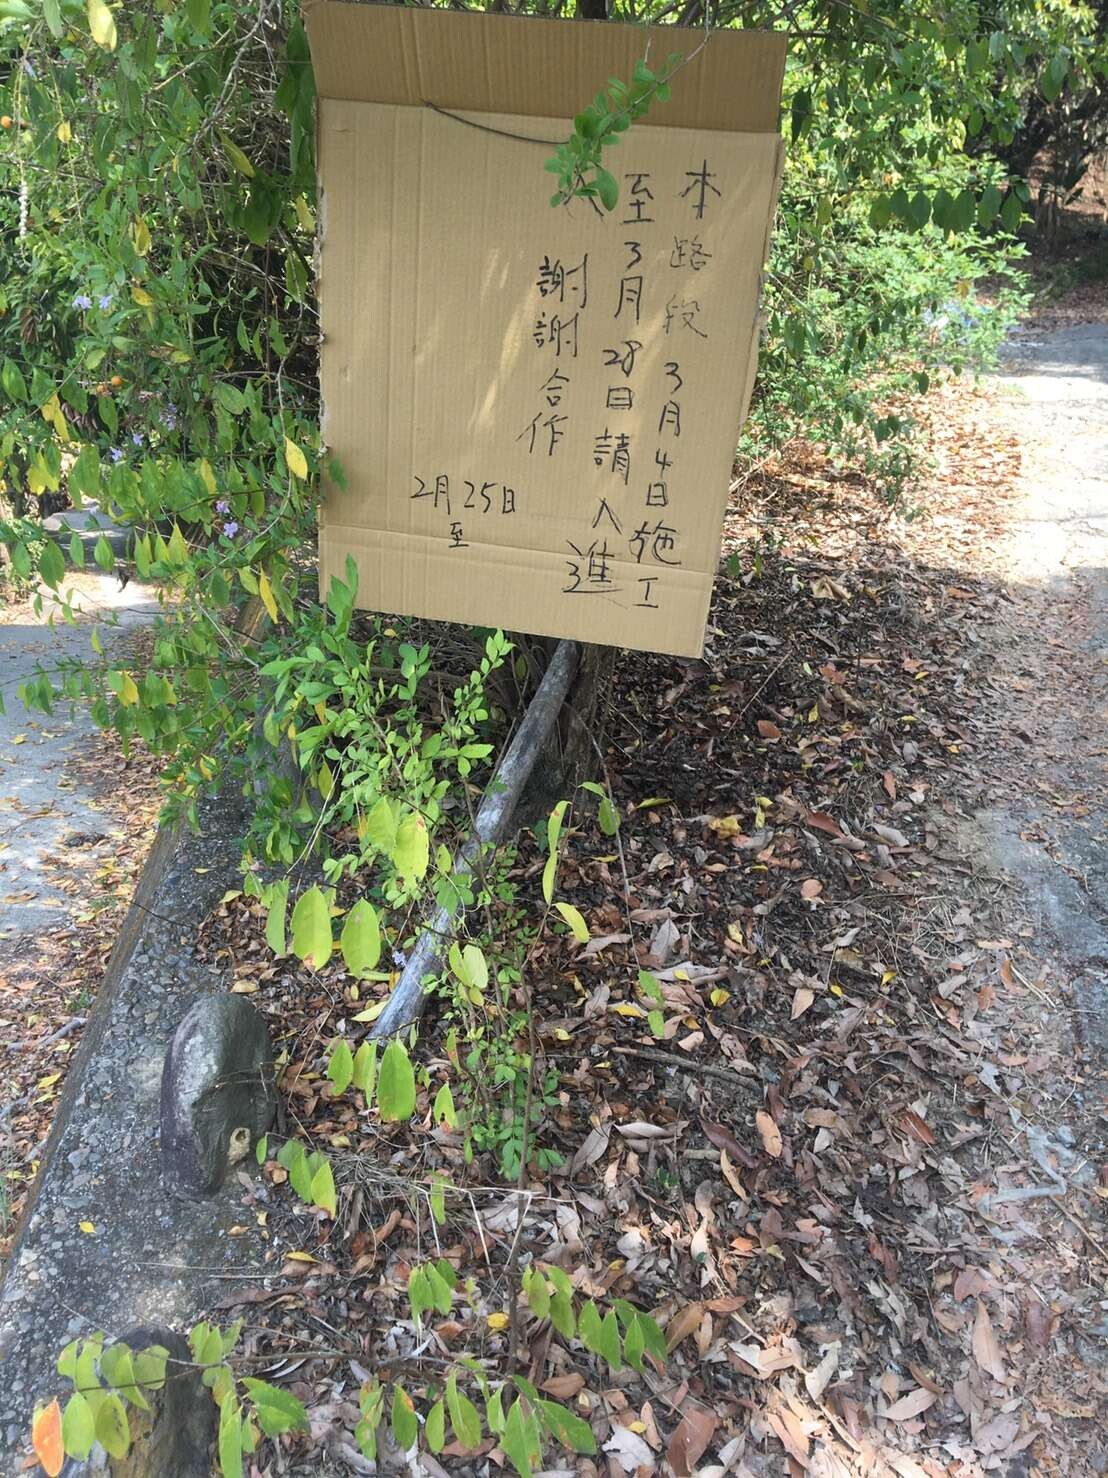 本路段3月4日施工
至3月28日請入進
入
謝謝合作
2月25日
至